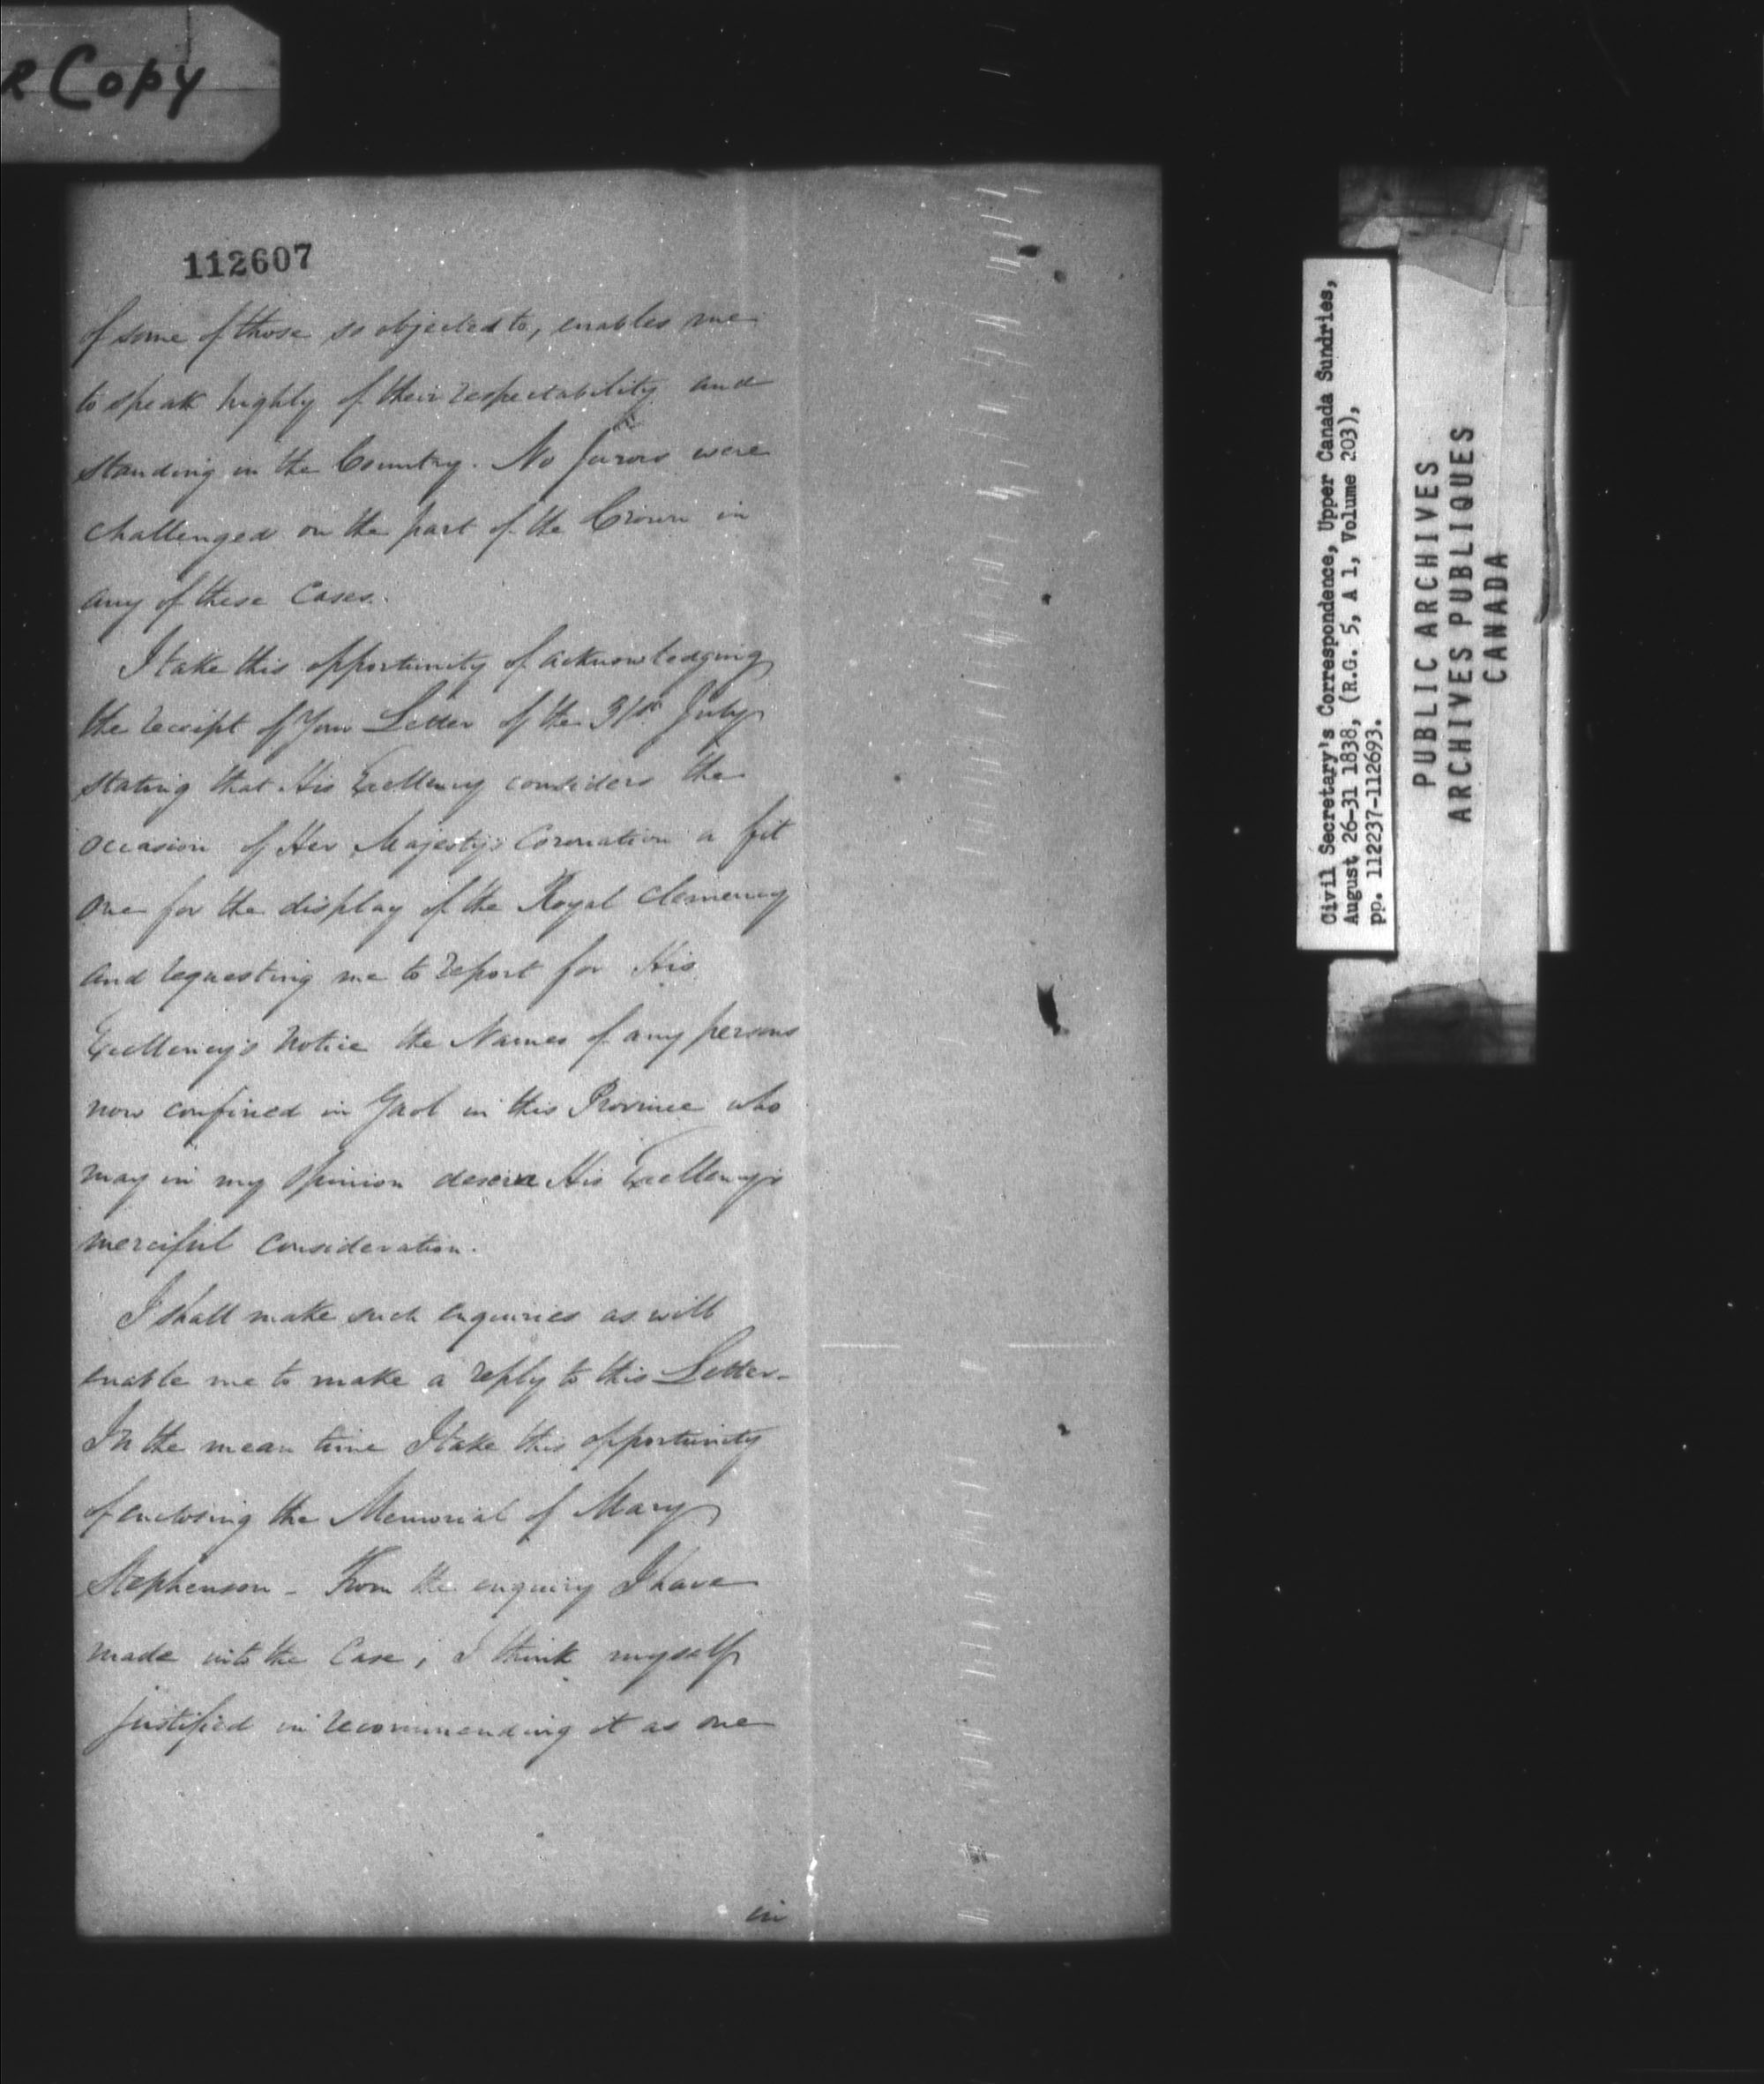 Copy
112607
of some of those so objected to, enables me
to speak highly of their respectability and
standing in the Country. No Jurors were
challenged on the part of the Crown in
any of these Cases.
I take this opportunity of acknowledging
the receipt of Your Letter of the 31st July
stating that His Excellency considers the
occasion of Her Majesty's Coronation a fit
one for the display of the Royal clemency
and requesting me to report for His
Excellency's notice the Names of any persons
now confined in Gaol in this Province who
may in my opinion deserve His Excellency's
merciful consideration.
I shall make such enquiries as will
enable me to make a reply to this Letter.
In the mean time I take this opportunity
of enclosing the Memorial of Mary
Stephenson - From the enquiry I have
made into the Case, I think myself
justified in recommending it as one
in
Civil Secretary's Correspondence, Upper Canada Sundries,
August 26-31 1838, (R.G. 5, A 1, Volume 203),
pp. 112237-112693.
PUBLIC ARCHIVES
ARCHIVES PUBLIQUES
CANADA